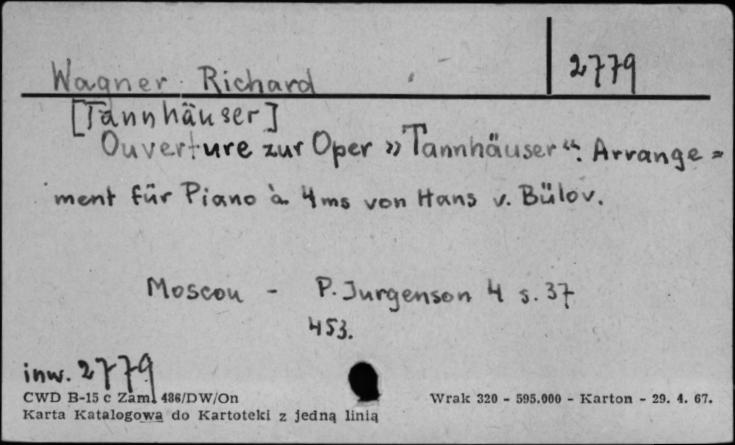 Wagner Richard
2779
[Tannhäuser]
Ouverture zur Oper »Tannhäuser“. Arrange=
ment für Piano à 4ms von Hans v. Bülov.
Moscou - P. Jurgenson 4 s. 37
453.
inw. 2779
CWD B-15 c Zam. 486/DW/On
Wrak 320 - 595.000 - Karton - 29. 4. 67.
Karta Katalogowa do Kartoteki z jedną linią